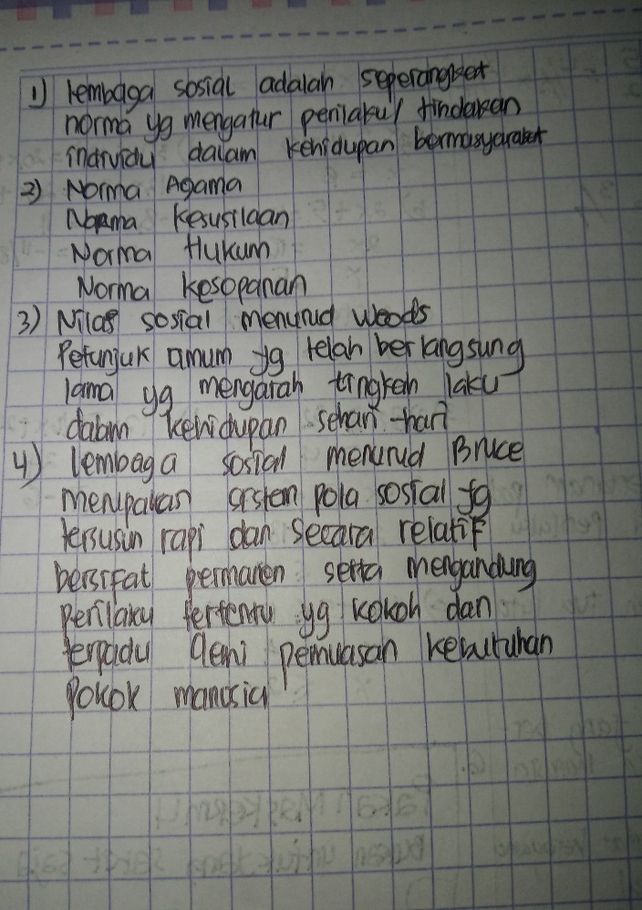 1) lembaga sosial adalah seperangket
norma yg mengatur perilaku/ tindakan
individu dalam kehidupan bermasyarakat
2) Norma Agama
Norma Kesusilaan
Norma Hukum
Norma kesopanan
3) Nilai sosial menurud Woods
Petunjuk umum yg telah berlangsung
lama yg mengarah tingkah laku
dalam kehidupan sehari-hari
4) lembaga sosial menurud Bruce
merupakan sistem pola sosial yg
tersusun rapi dan secara relatif
bersifat permanen serta mengandung
perilaku tertentu yg kokoh dan
terpadu demi pemuasan kebutuhan
Pokok manusia